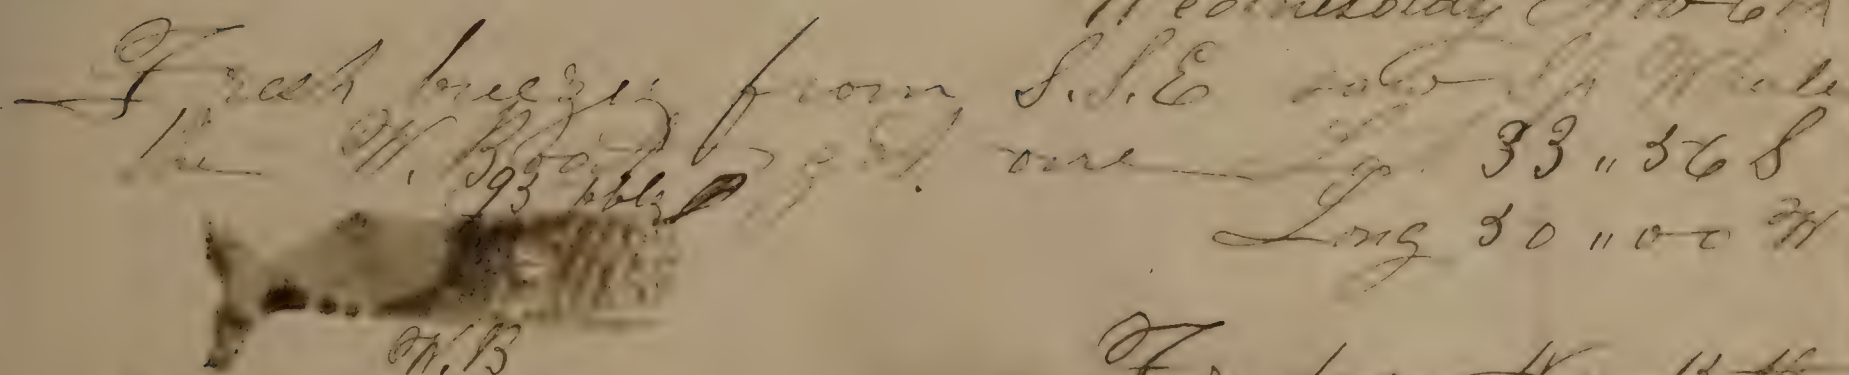 Wednesday Nov 6th
Fresh breezes from S.S.E saw Sp Whale
the W. Boat got one Lat. 33 " 56 S
93 bbls
Long 30 " 00 W
W.B